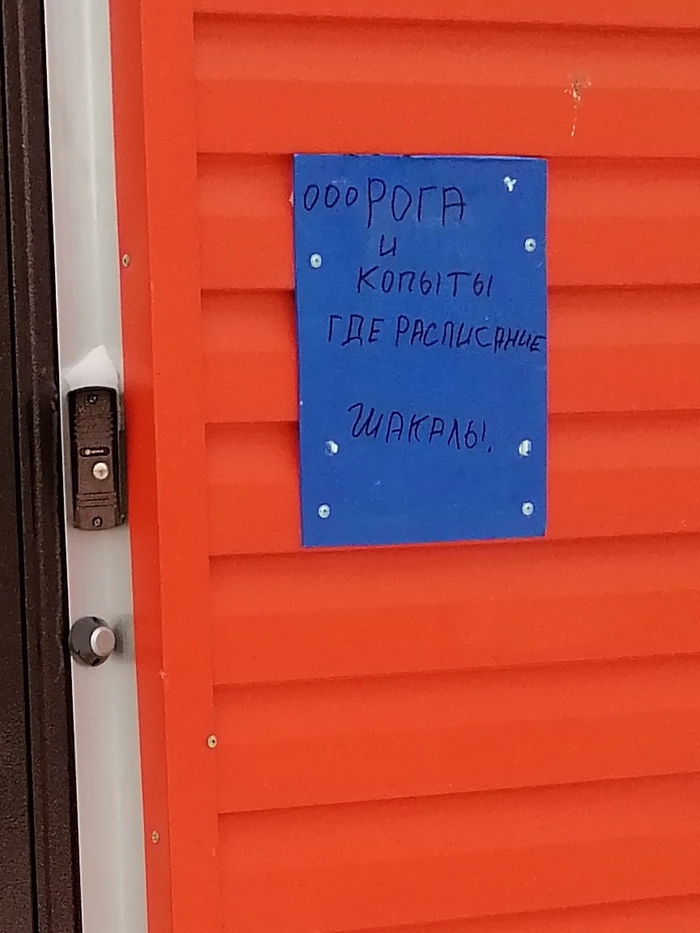 ООО РОГА
И
КОПЫТЫ
ГДЕ РАСПИСАНИЕ
ШАКАЛЫ!